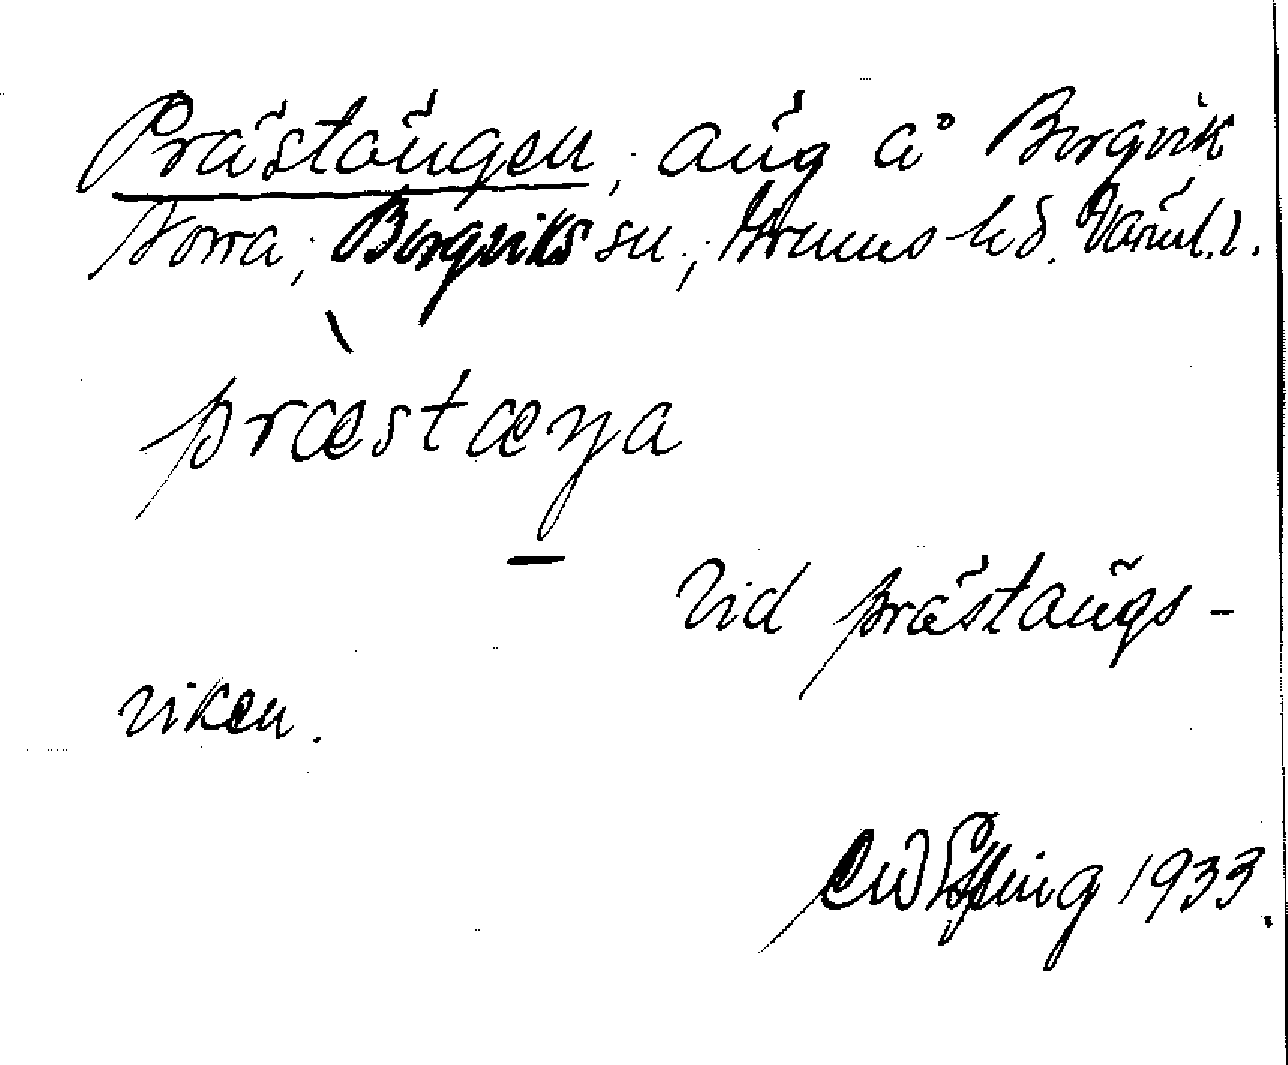 Prästängen, äng å Borgvik
Norra, Borgviks sn, Grums hd. Värml. l.
præstæŋa
Vid prästängs-
viken.
1933.